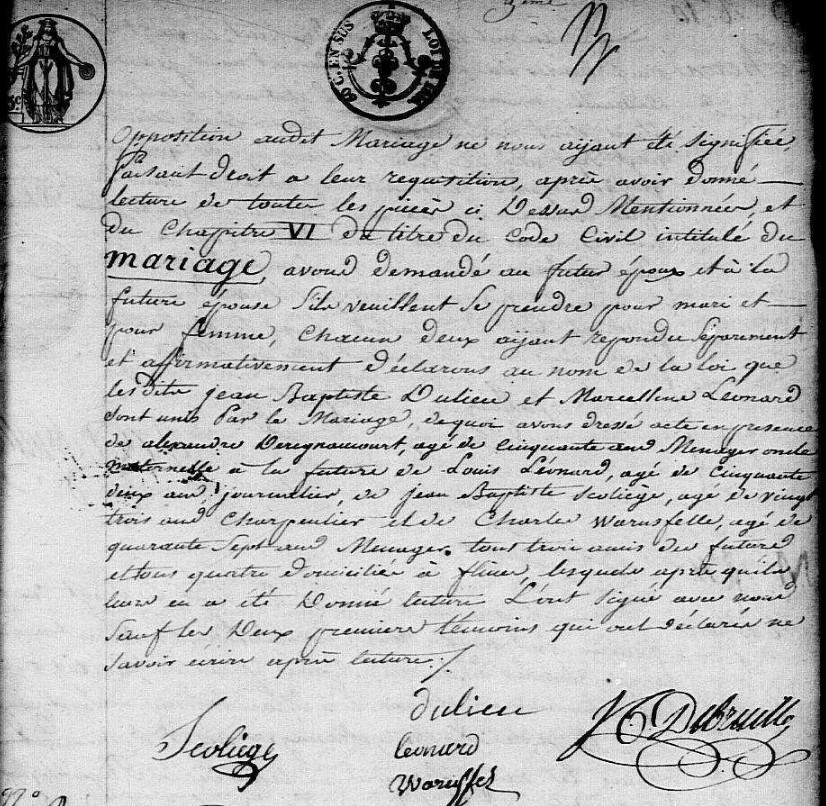 60 C. EN SUS
LOI DE 1816
Opposition audit Mariage ne nous aijant été signifiée,
faisant droit a leur requisition, après avoir donné
lecture de toutes les pièces ci Dessus Mentionnées, et
du Chapitre VI du titre du Code Civil intitulé du
mariage, avons demandé au futur époux et à la
future épouse s'ils veuillent se prendre pour mari et
pour femme, chacun deux aijant repondu séparement
et affirmativement déclarons au nom de la loi que
les dits jean Baptiste Dulieu et Marcelline Leonard
sont unis Par le Mariage, de quoi avons dressé acte en presence
de alexandre Deregnaucourt, agé de cinquante ans Menager oncle
maternelle à la future de Louis Léonard, agé de cinquante
deux ans, journalier de jean Baptiste Scoliège, agé de vingt
trois ans Charpentier et de Charles Warusfelle, agé de
quarante Sept ans Menager. tous trois amis des futurs
et tous quatre domiciliés à flines, lesquels après qu'ils
leurs en a été Donné lecture L'ont signé avec nous
sauf les Deux premiers témoins qui ont déclarés ne
savoir écrire après lecture ./.
dulieu
Scoliège
leonard
Warusfel
N°